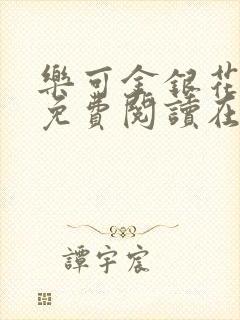 樂可金銀花
免費閱讀在
譚宇宸